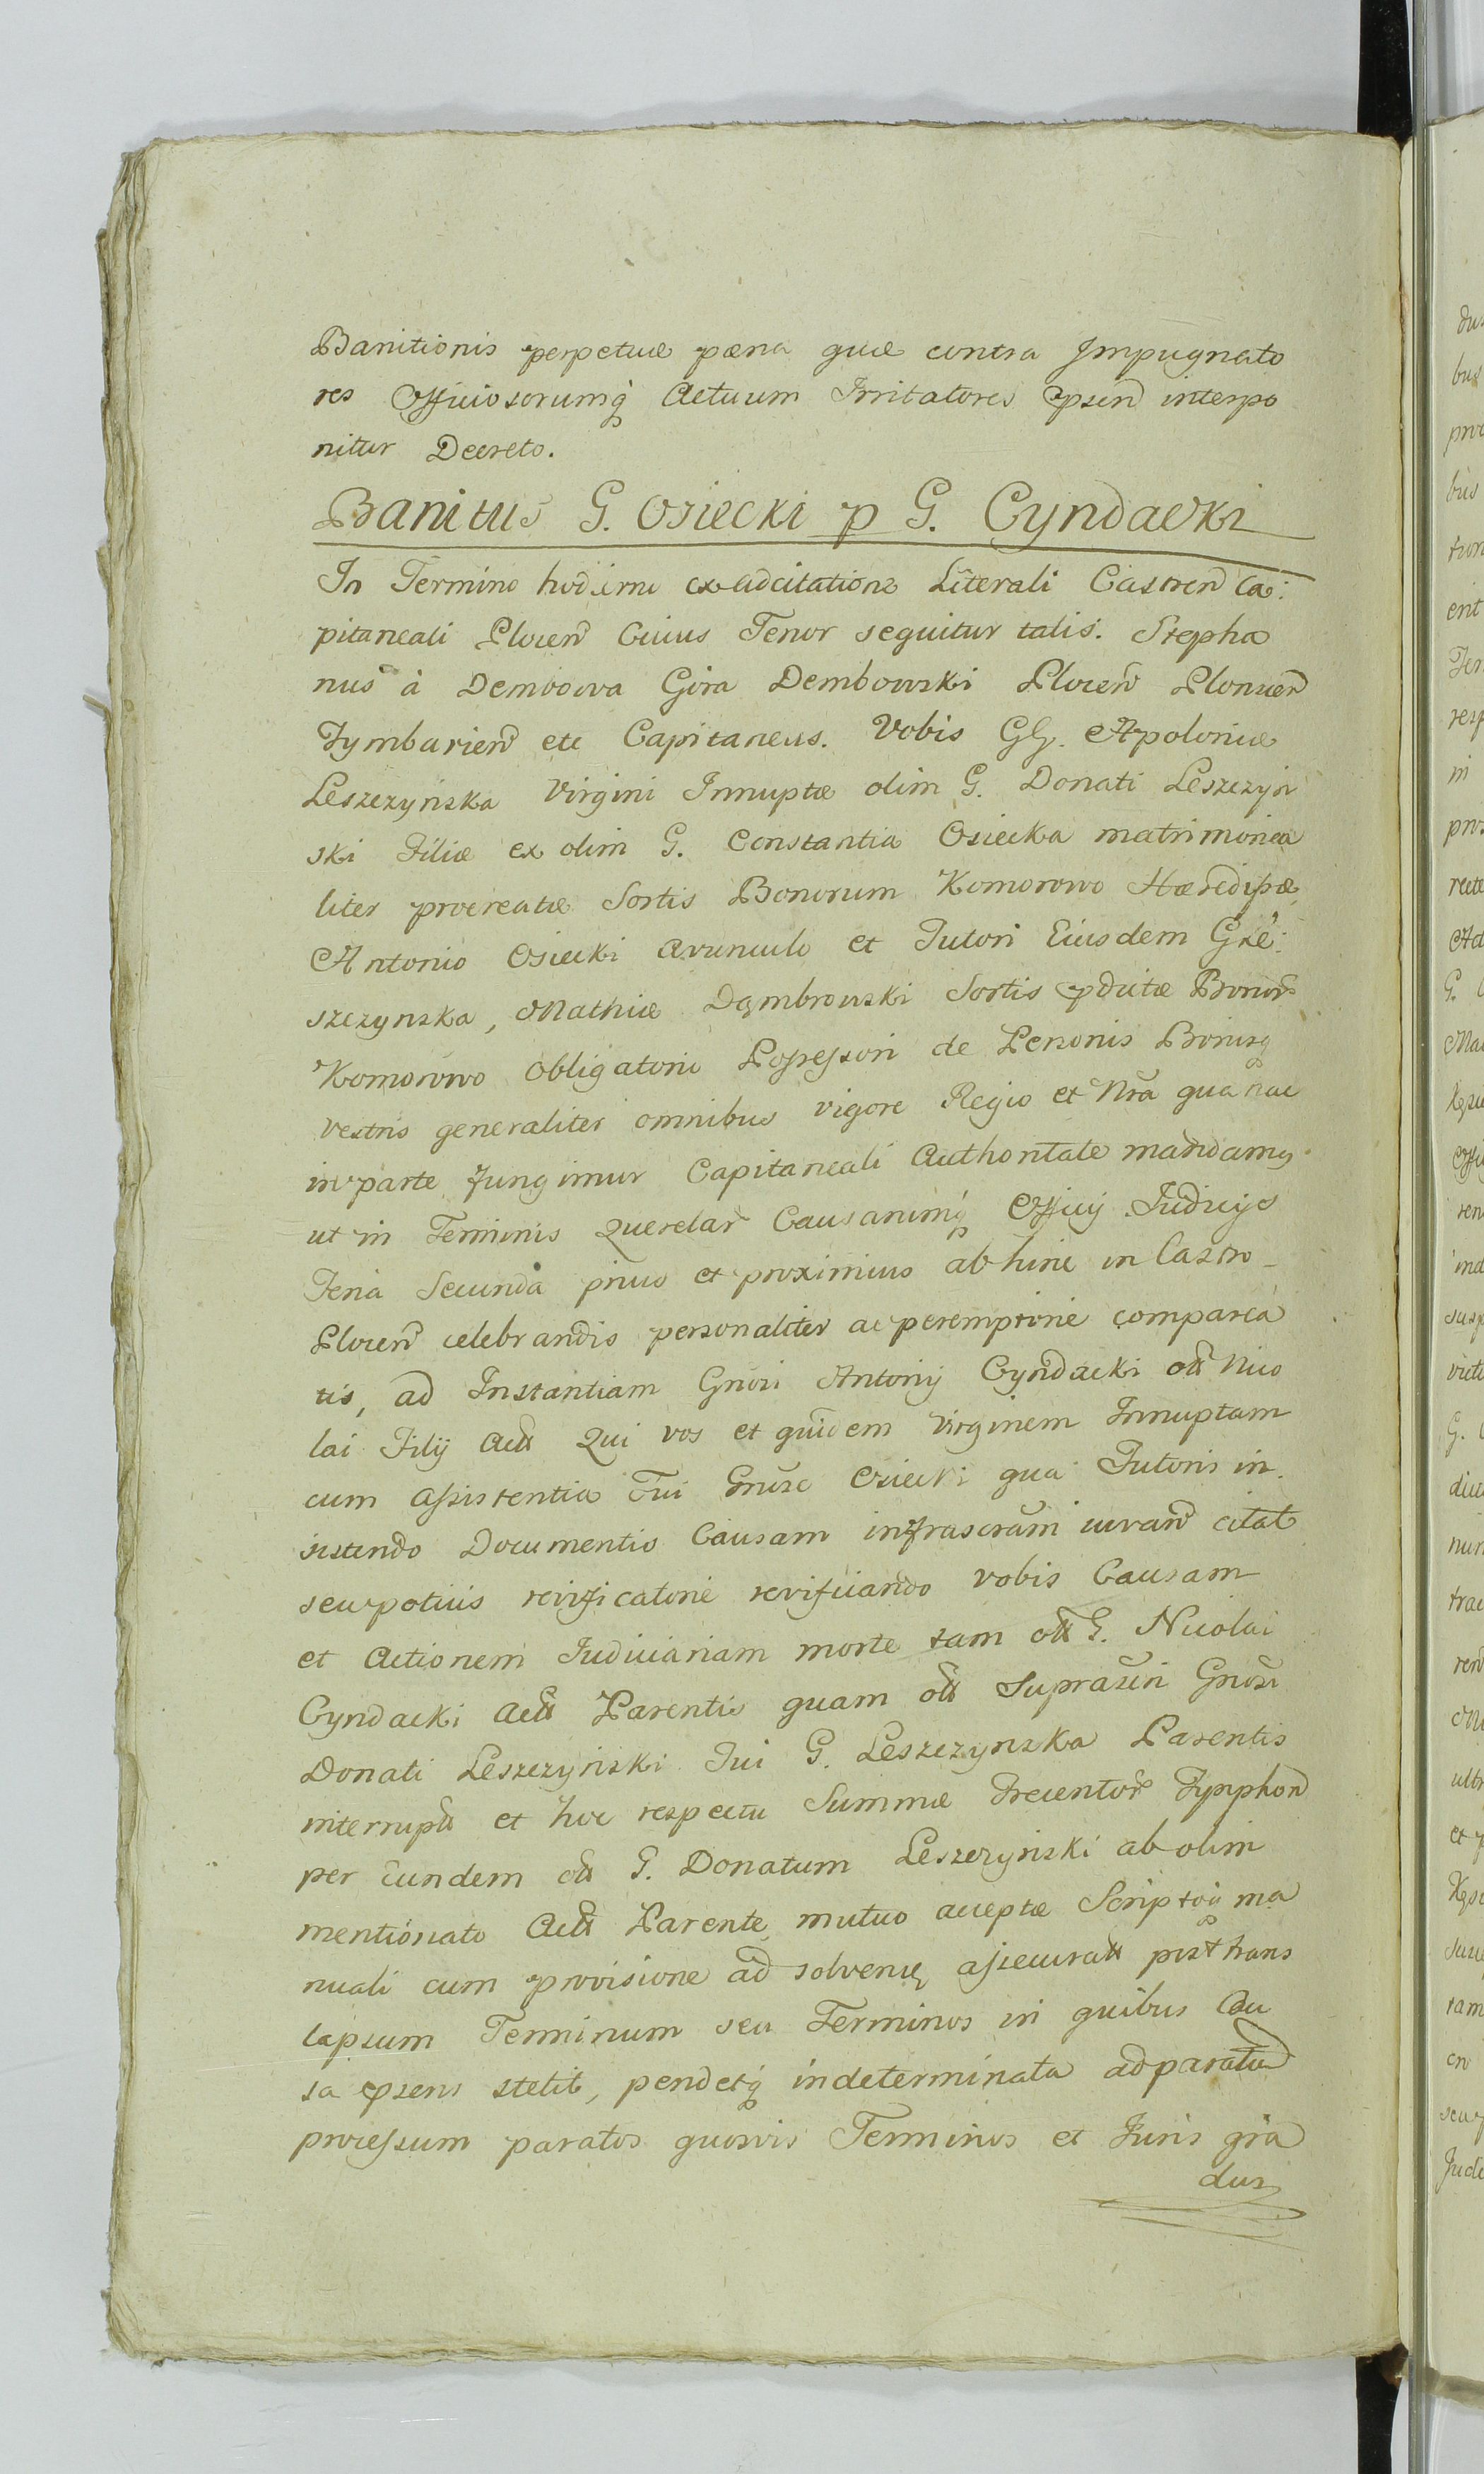 Banitionis perpetuæ pæna quæ contra Impugnato
res Officiosorumq́ Actuum Irritatores psen̄ interpo
nitur Decreto.
Banitus G. Osiecki p G. Cyndacki
In Termino hodierno ex adcitatione Literali Castren̄ Ca:
pitaneali Plocen̄ Cuius Tenor sequitur talis. Stepha
nus à Dembowa Góra Dembowski Plocen̄ Plonscen̄
Tymbarien̄ etc Capitaneus. Vobis GG. Apoloniæ
Leszczyńska Virgini Innuptæ olim G. Donati Leszczyń
ski Filiæ ex olim G. Constantia Osiecka matrimonia
liter procreatæ Sortis Bonorum Komorowo Hæredissæ,
Antonio Osiecki Avunculo et Tutori Eiusdem Gñe:
szczynska, Mathiæ Dąmbrowski Sortis pdictæ Bonor̄
Komorowo Obligatorio Possessori de Personis Bonisq
vestris generaliter omnibus vigore Regio et Nr̄a qua hac
in parte fungimur Capitaneali Authoritate mandamus
ut in Terminis Querelar̄ Causarumq́ Officij Judicijs
Feria Secunda primo et proximius ab hinc in Castro
Plocen̄ celebrandis personaliter ac peremptorie comparea
tis, ad Instantiam Gn̄osi Antonij Cyndacki ołł Nico
lai Filij Acłł Qui vos et quidem Virginem Innuptam
cum Assistentia Tui Gn̄ose Osiecki qua Tutoris in
sistendo Documentis Causam infrascram̄ iuvan̄ citat
seu potius reivificatorie revificando vobis Causam
et Actionem Judiciariam morte tam ołł G. Nicolai
Cyndacki Acłł Parentis quam ołł Suprascri Gn̄osi
Donati Leszczyński Tui G. Leszczynska Parentis
interrupłł et hoc respectu Summæ Trecentor̄ Tynphon̄
per eundem ołł G. Donatum Leszczyński ab olim
mentionato Acłł Parente mutuo acceptæ Scriptoq́ ma
nuali cum provisione ad solvenḍ assecuratłł post trans
lapsum Terminum seu Terminos in quibus Cau
sa psens stetit, pendetq́ indeterminata ad paratum̄
processum paratos quosvis Terminos et Juris grā
dus